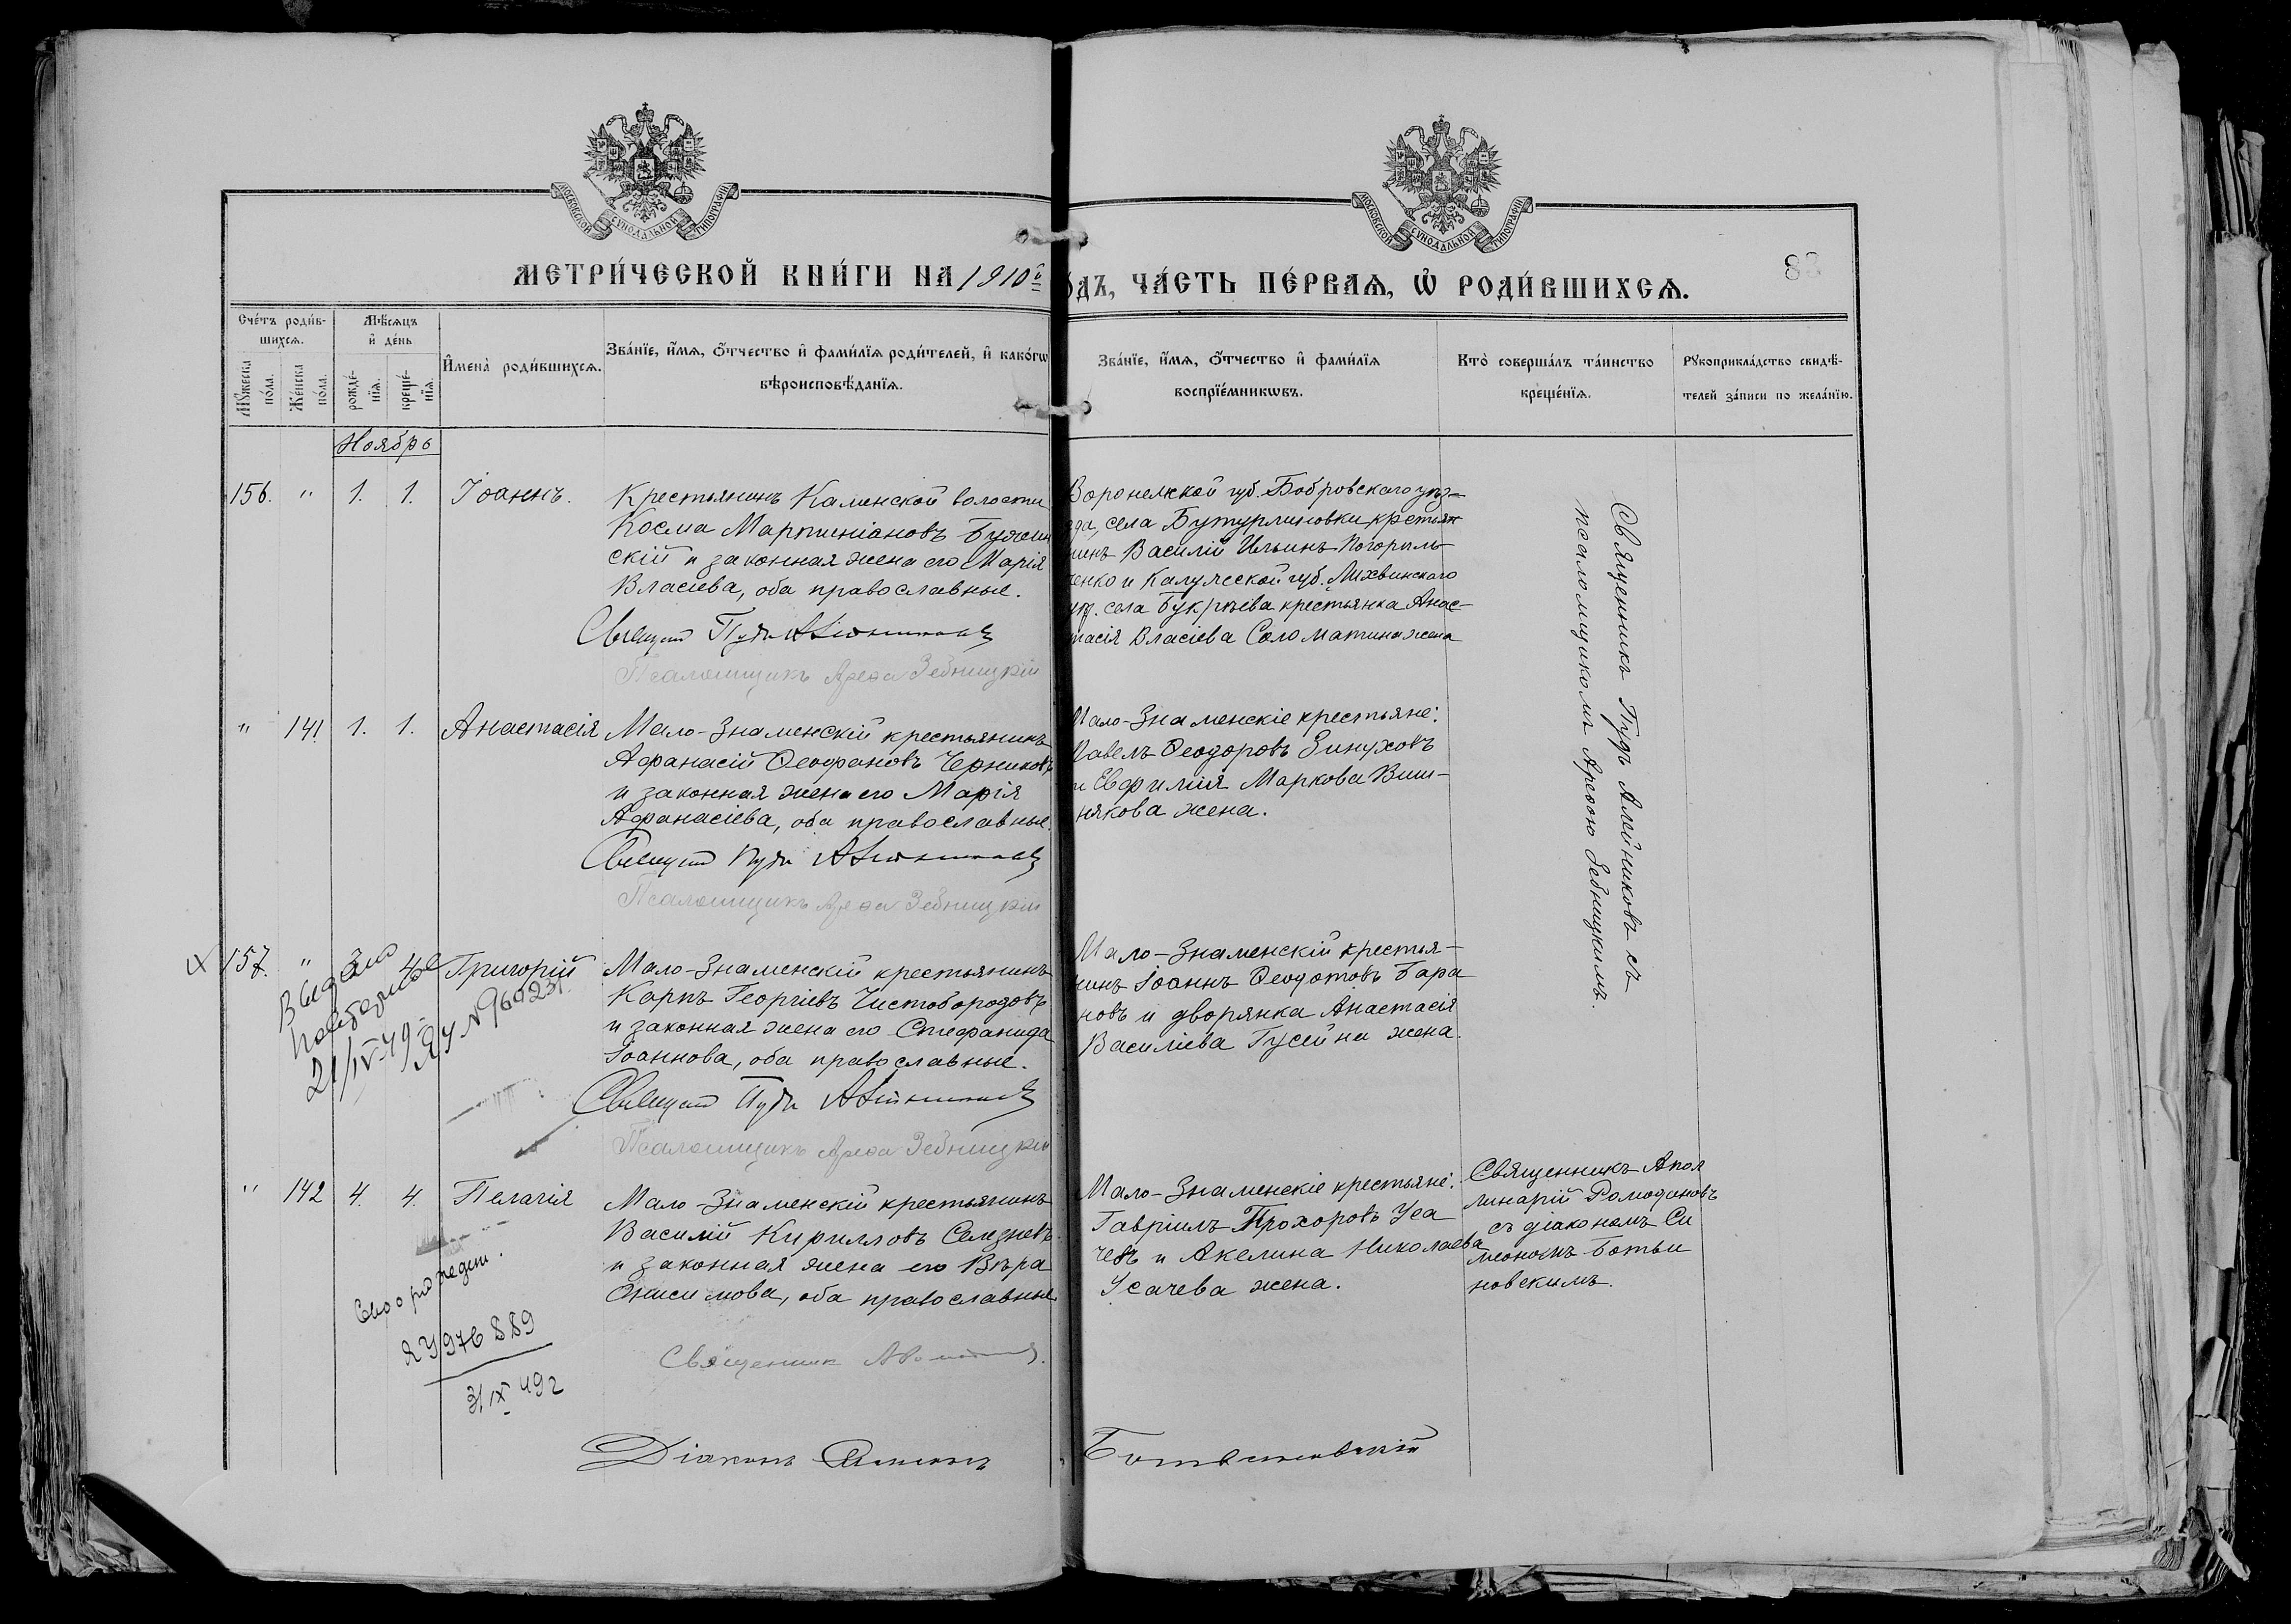 МОСКОВСКОЙ СѴНОДАЛЬНОЙ ТИПОГРАФІИ
МОСКОВСКОЙ СѴНОДАЛЬНОЙ ТИПОГРАФІИ
МЕТРИ́ЧЕСКОЙ КНИ́ГИ НА 1910й
О́ДЪ, ЧА́СТЬ ПЕ́РВАѦ, Ѡ҆ РОДИ́ВШИХСѦ.
83
Сче́тъ роди́в-
шихсѧ.
Мꙋжеска по́ла.
Же́нска по́ла.
Мѣ́сѧцъ
и҆ де́нь
рожде́-
нїѧ.
креще́-
нїѧ.
И҆мена̀ роди́вшихсѧ.
Зва́нїе, и҆́мѧ, ѻ҆́тчество и҆ фами́лїѧ роди́телей, и҆ како́гѡ
вѣроисповѣ́данїѧ.
Зва́нїе, и҆́мѧ, ѻ҆́тчество и҆ фами́лїѧ
воспрїе́мникѡвъ.
Кто̀ соверша́лъ та́инство
креще́нїѧ.
Рꙋкоприкла́дство свидѣ́-
телей за́писи по жела́нїю.
Ноябрь
156. " 1. 1. Іоаннъ.
Крестьянинъ Каменской волости
Косма Мартиніановъ
скій и законная жена его Марія
Власіева, оба православные.
Псаломщикъ Арефа Зебницкій
Воронежской губ. Бобровскаго уѣз-
зда, села Бутурлиновки крестьян
нинъ Василій Ильинъ Погориль-
ченко и Калужской губ. Лихвинскаго
уѣз. села Букрѣева крестьянка Анас-
тасія Власіева Соломатина жена
Священникъ Пудъ Алейниковъ съ
псаломщикомъ Арефою Зебницкимъ.
" 141. 1. 1. Анастасія
Мало-Знаменскій крестьянинъ
Афанасій Ѳеофановъ Черниковъ
и законная жена его Марія
Афанасіева, оба православные.
Псаломщикъ Арефа Зебницкій
Мало-Знаменскіе крестьяне:
Павелъ Ѳеодоровъ Зинуховъ
и Евфимія Маркова Виш-
някова жена.
157. " 3. 4. Григорій
Выдано
21/IV-49г
ЯУ №
Мало-Знаменскій крестьянинъ
Карпъ Георгіевъ Чистобородовъ
и законная жена его Стефанида
Іоаннова, оба православные.
Псаломщикъ Арефа Зебницкій
Мало-Знаменскій крестья-
нинъ Іоаннъ Ѳеодотовъ Бара
новъ и дворянка Анастасія
Василіева Гусейна жена.
" 142 4. 4. Пелагія
Мало-Знаменскій крестьянинъ
Василій Кирилловъ Селезневъ
и законная жена его Вѣра
Онисимова, оба православные
Священник
Діаконъ Симеонъ
Ботвиновскій
Мало-Знаменскіе крестьяне:
Гавріилъ Прохоровъ Уса
чевъ и Акелина Николаева
Усачева жена.
Священникъ Апол
линарій Ромодановъ
съ діакономъ Си
меономъ Ботви
новскимъ.
ЯУ 976889
3/IX 49г